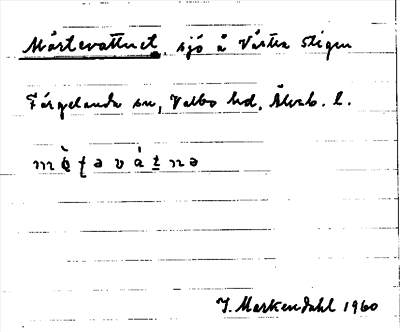 Mårtevattnet, sjö å Västra Stigen
Färgelanda sn, Valbo hd, Älvsb. l.
J. Markendahl 1960